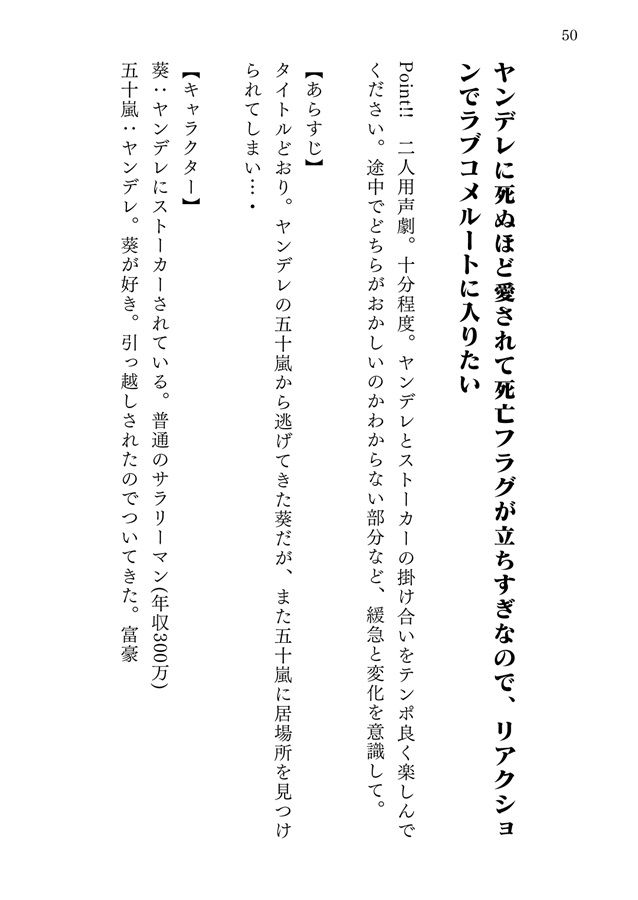 50
ヤンデレに死ぬほど愛されて死亡フラグが立ちすぎなので、リアクショ
ンでラブコメルートに入りたい
Point!!　二人用声劇。十分程度。ヤンデレとストーカーの掛け合いをテンポ良く楽しんで
ください。途中でどちらがおかしいのかわからない部分など、緩急と変化を意識して。
【あらすじ】
タイトルどおり。ヤンデレの五十嵐から逃げてきた葵だが、また五十嵐に居場所を見つけ
られてしまい…・
【キャラクター】
葵：ヤンデレにストーカーされている。普通のサラリーマン(年収300万)
五十嵐：ヤンデレ。葵が好き。引っ越しされたのでついてきた。富豪